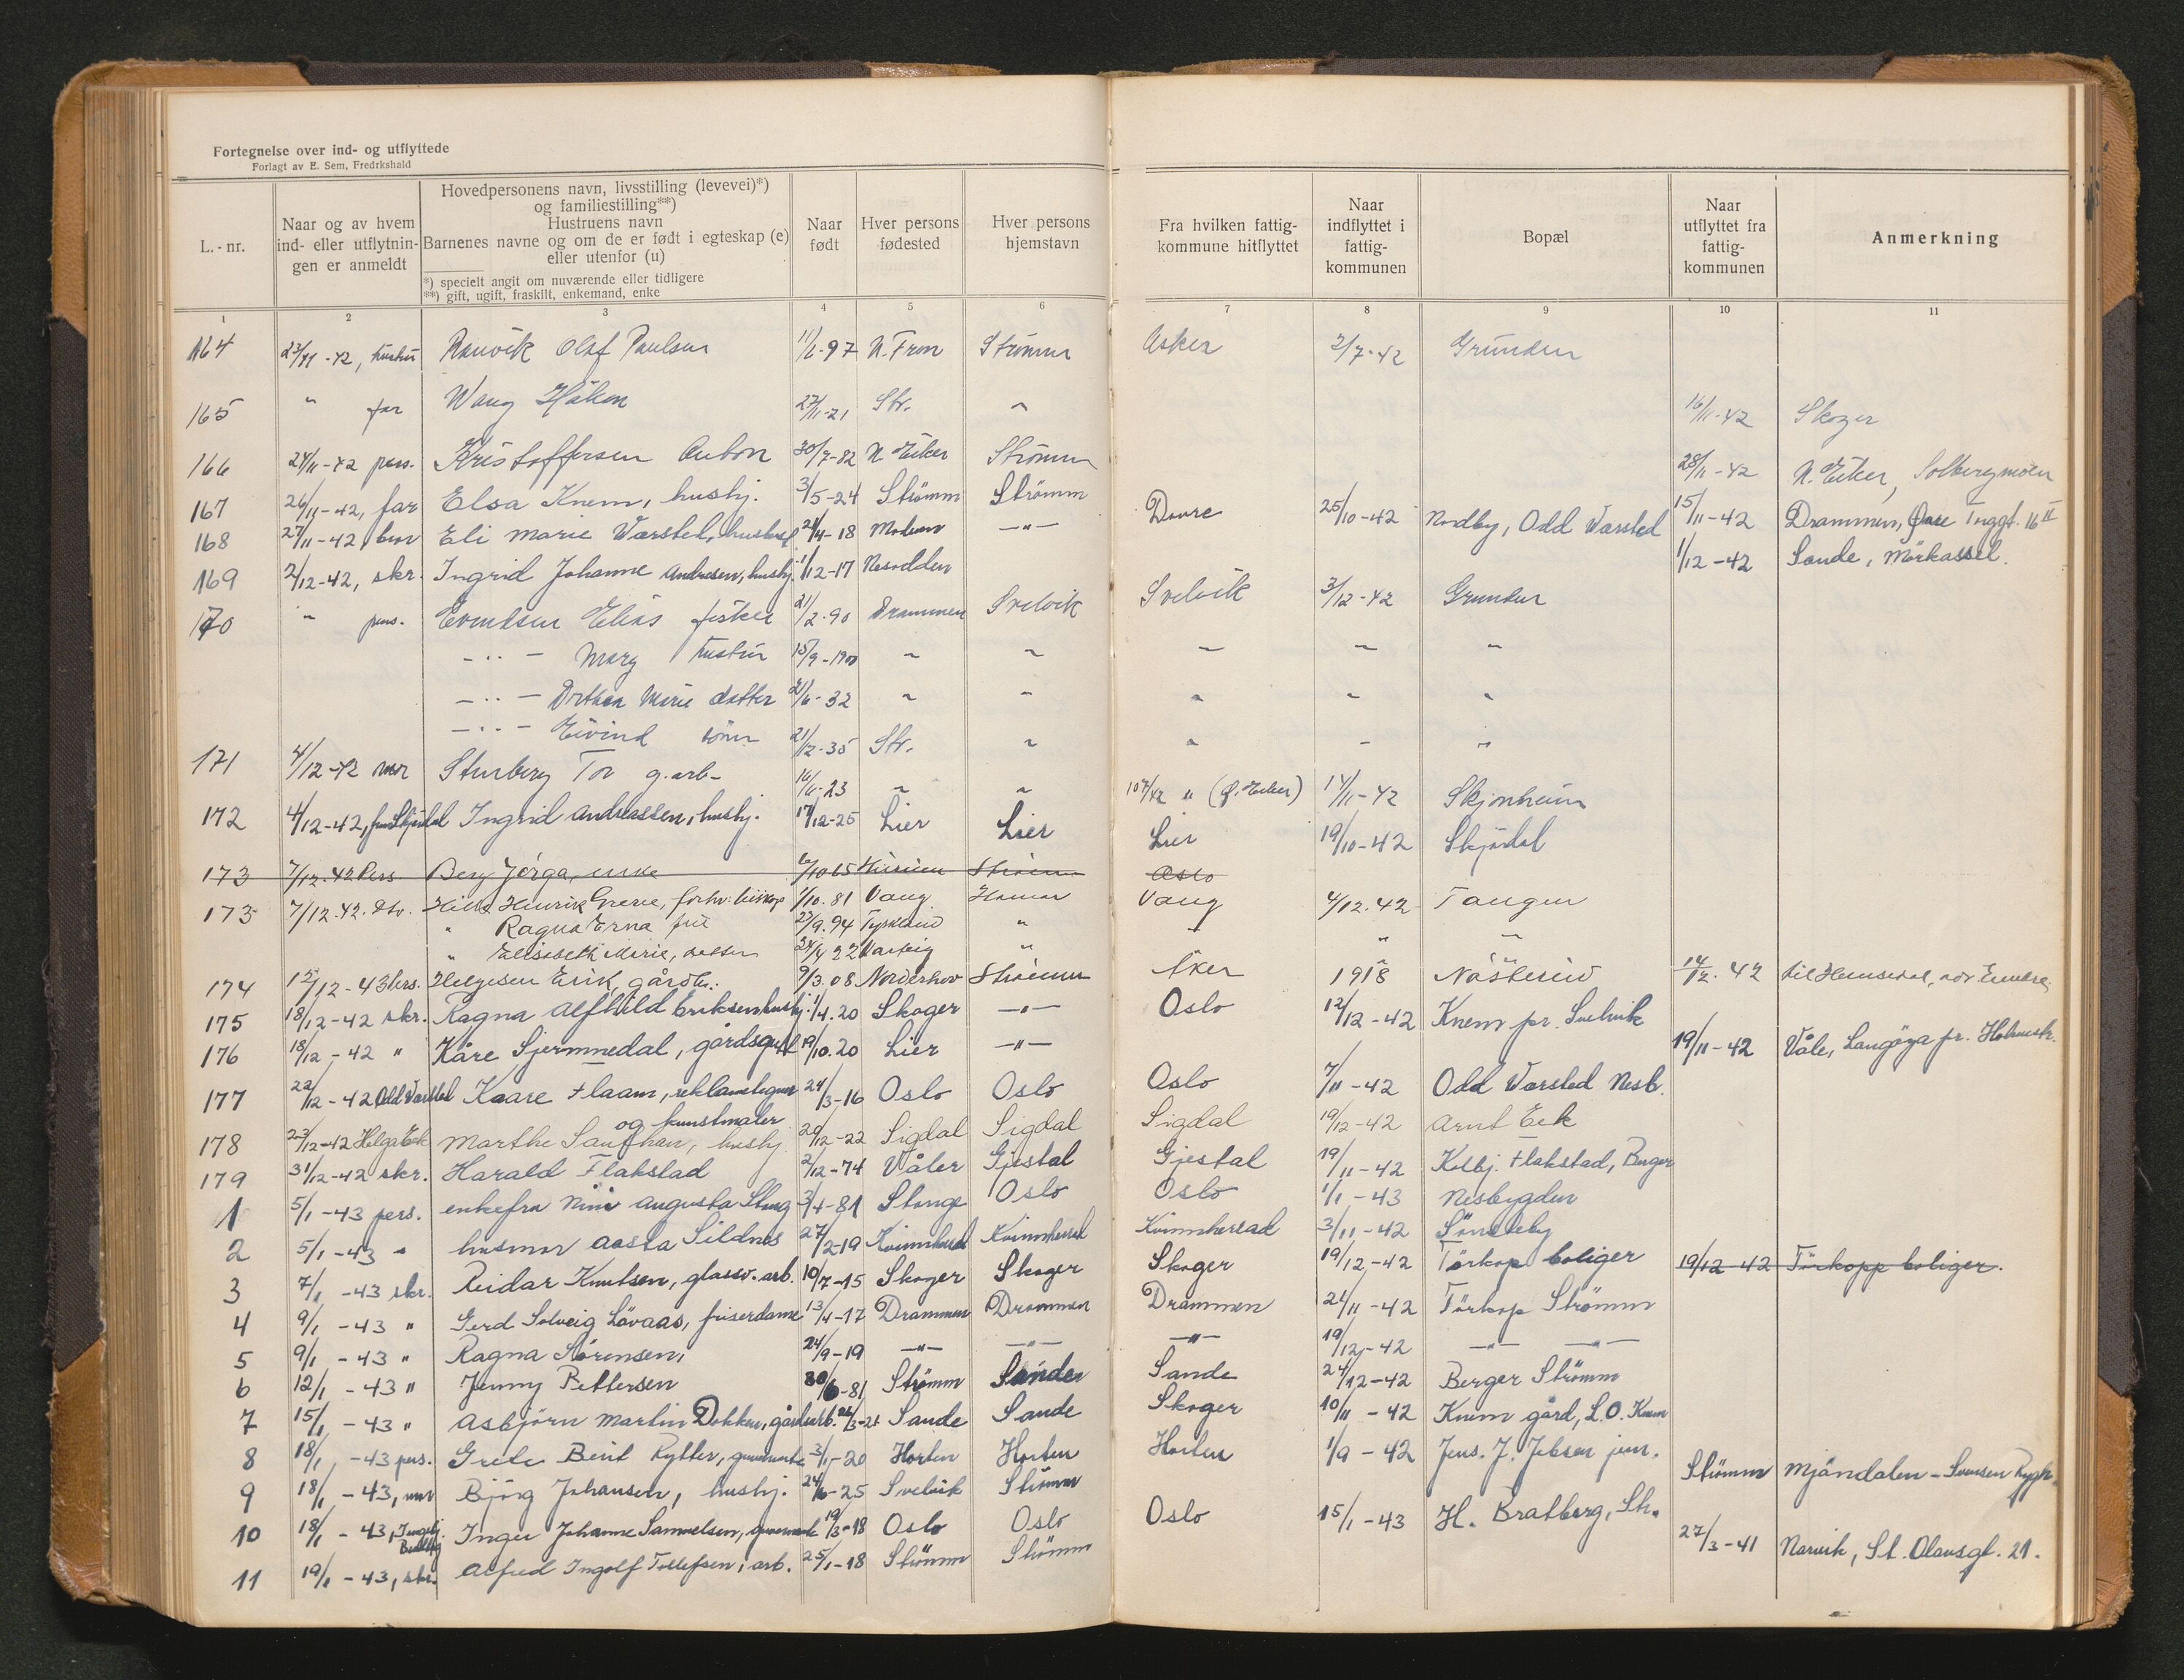 Fortegnelse over ind- og utflyttede
Forlagt av E. Sem, Fredrkshald
L.-nr.
Naar og av hvem ind- eller utflytnin- gen er anmeldt
Hovedpersonens navn, livsstilling (levevei)*)
og familiestilling**)
Hustruens navn
Barnenes navne og om de er født i egteskap (e)
eller utenfor (u)
*) specielt angit om nuværende eller tidligere
**) gift, ugift, fraskilt, enkemand, enke
Naar født
Hver persons fødested
Hver persons hjemstavn
Fra hvilken fattig- kommune hitflyttet
Naar indflyttet i fattig- kommunen
Bopæl
Naar utflyttet fra fattig- kommunen
Anmerkning
1 2 3 4 5 6 7 8 9 10 11
164 23/11-42, hustru Ranvik Olaf Paulsen 11/6-97 N. Fron Strømm Asker 2/7-42 Grunden
165 " far Wang Håkon 27/11-21 Str. " 16/11-42 Skoger
166 24/11-42 pers. Kristoffersen Anton 30/7-82 N. Eiker Strømm 28/11-42 N. Eiker, Solbergmoen
167 26/11-42, far Elsa Knem, hushj. 3/5-24 Strömm Strömm 15/11-42 Drammen, Tnggt. 16 II
168 27/11-42, bror Eli Marie Warsted, 24/4-18 Modum -"- Dovre 25/10-42 Nordby, Odd Warsted
169 2/12-42, skr. Ingrid Johanne Andresen, hushj. 1/12-17 Nesodden 1/12-42 Sande, Mörkassel.
170 " pers. Evendsen Elias fisker 21/2-90 Drammen Svelvik Svelvik 3/12-42 Grunden
-"- Mary hustru 15/9-1900 " " " " "
-"- Dorthea Marie datter 21/6-32 " " " " "
-"- Eivind sønn 21/12-35 Str. " " " "
171 4/12-42 mor Sturberg Tor g.arb- 16/6-23 " " 107/42 " (Ø. Eiker) 14/11-42 Skjønheim
172 4/12-42, fru Skjødal Ingrid Andreassen, hushj. 17/12-25 Lier Lier Lier 19/10-42 Skjødal
173 7/12.42 Pers Berg Jørga, enke 6/10 65 Strømm Oslo
173 7/12.42. Hille Henrik Greve, forhv. biskop 1/10.81 Vang Hamar Vang 4/12.42 Tangen
" Ragna Erna fru 23/9.94 Tyskland " " " "
" Elisabeth Marie, datter 24/4 22 Varteig "
174 12/12-43 Helgesen Erik, gårdbr. 9/3.08 Norderhov Strømm Aker 1918 Nöstesud 14/12.42 til Hemsedal,
175 18/12-42 skr. Ragna Alfhild Eriksen hushj. 1/4.20 Skoger -"- Oslo 12/12-42 Knem pr. Svelvik
176 18/12-42 " Kåre Sjermmedal, gårdsgutt 19/10.20 Lier -"- 19/11-42 Våle, Langöya pr. Holmestr.
177 22/12-42 Odd Warsted Kaare Flaam, reklametegner og kunstmaler 24/3-16 Oslo Oslo Oslo 7/11-42 Odd Warsted Nesb.
178 23/12-42 Helga Eek Marthe hushj. 20/12-22 Sigdal Sigdal Sigdal 19/12-42 Arnt Eek
179 31/12-42 skr. Harald Flakstad 2/12-74 Våler Gjestal Gjestal 19/11-42 Kolbj. Flakstad, Berger
1 5/1-43 pers. enkefru Nini Augusta Stang 3/4-81 Stange Oslo Oslo 1/1-43 Nesbygden
2 5/1-43 " husmor Aasta Sildnes 27/2-19 Kvinnherad Kvinnherad Kvinnherad 3/11-42 Sönneby
3 7/1-43 skr. Reidar Knutsen, glassv.arb. 10/7-15 Skoger Skoger Skoger 19/12-42 Törkop boliger 19/12 42 Törkopp boliger.
4 9/1-43 " Gerd Solveig Lövaas, friserdame 13/4-17 Drammen Drammen Drammen 24/11-42 Törkop Strömm
5 9/1-43 " Ragna Sörensen, 24/9-19 -"- -"- -"- 19/12-42 -"- -"-
6 12/1-43 " Jenny Pettersen 30/6-81 Strömm Sande Sande 24/12-42 Berger Strömm
7 15/1-43 " Asbjörn Martin Dokken, gårdsarb. 26/3-21 Sande Sande Skoger 10/11-42 Knem gård, L.O. Knem
8 18/1-43 pers. Grete Berit Rytter, guvernante 3/1-20 Horten Horten Horten 1/9-42 Jens. J. Jebsen jun.
9 18/1-43, mor Björg Johansen, hushj. 24/6-25 Svelvik Strömm Strömm Mjöndalen - Svensen Rygh.
10 18/1-43, Inger Johanne Samuelsen, guvernante 19/3-18 Oslo Oslo Oslo 15/1-43 H. Bratberg, Sk.
11 19/1-43, skr. Alfred Ingolf Tollefsen, arb. 25/1-18 Strömm Strömm 27/3-41 Narvik, St. Olavsgt. 21.